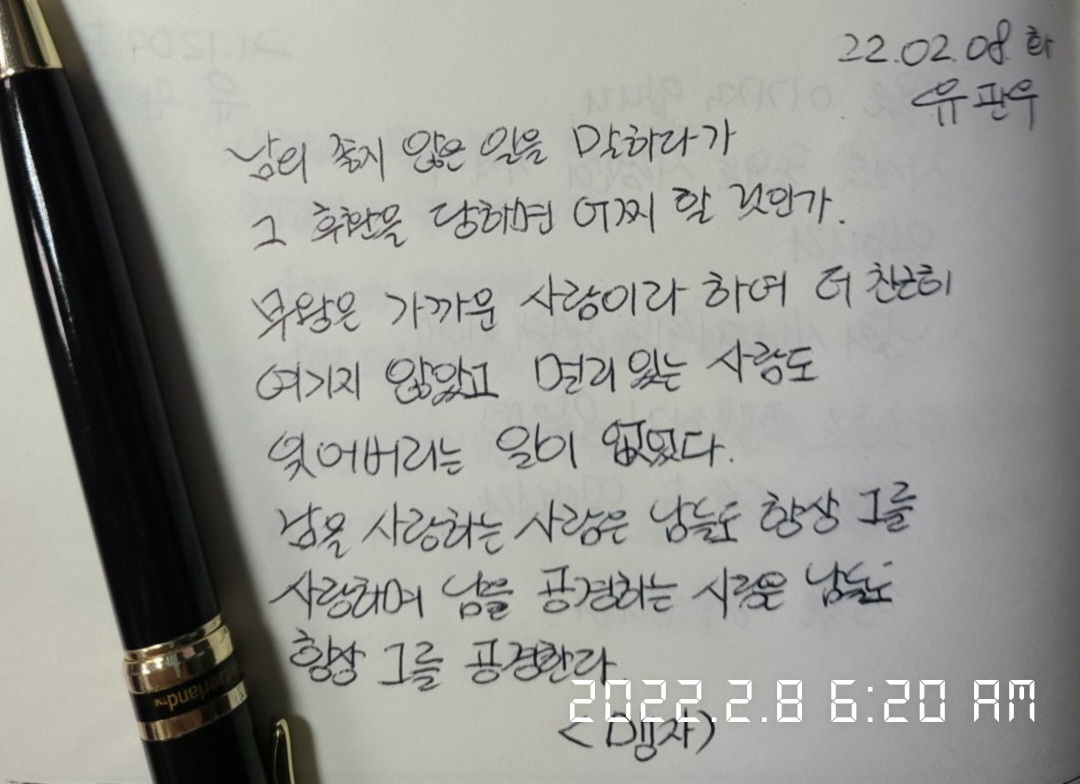 22.02.08 화
유판우
남의 좋지 않은 일을 말하다가
그 후환을 당하면 어찌 할 것인가.
무왕은 가까운 사람이라 하여 더 친근히
여기지 않았고 멀리 있는 사람도
잊어버리는 일이 없었다.
남을 사랑하는 사람은 남들도 항상 그를
사랑하며 남을 공경하는 사람은 남들도
항상 그를 공경한다.
2022.2.8 6:20 AM
<맹자>
berland™